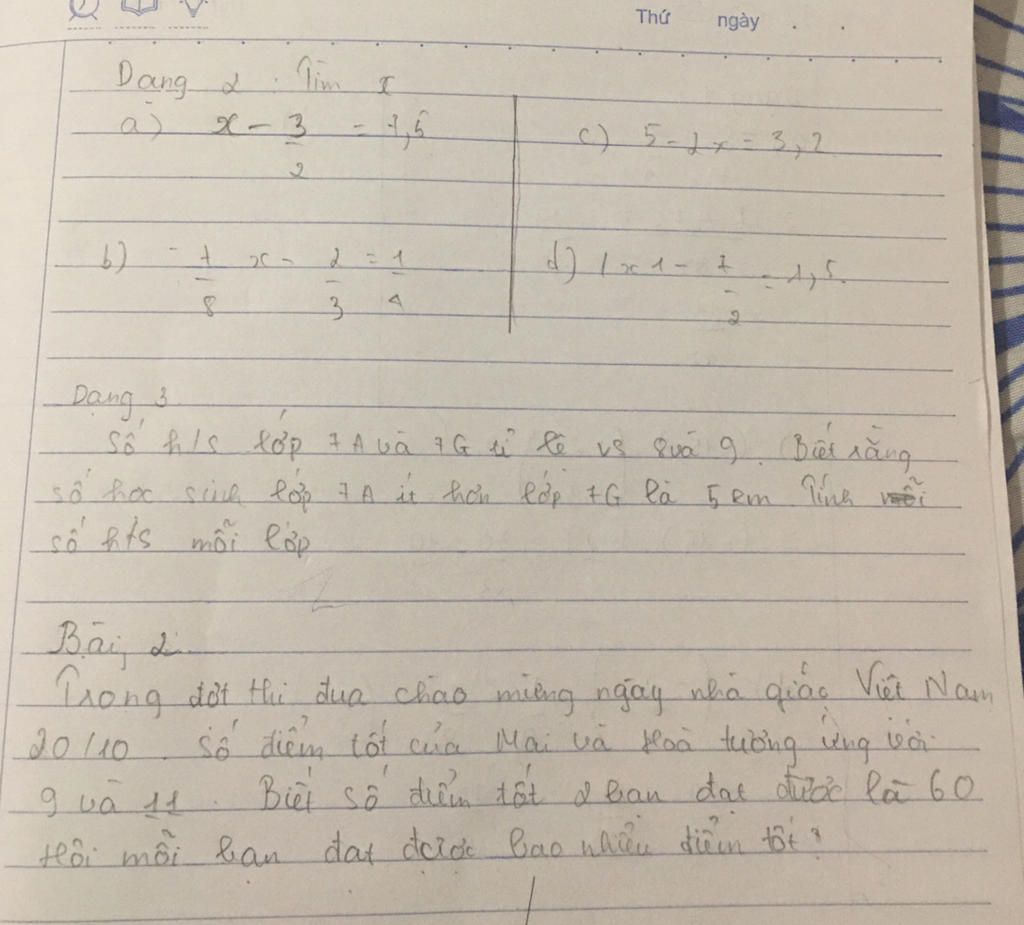 Thứ ngày . .
Dạng 2 : Tìm x
a) x - 3/2 = 7,5
c) 5 - 2x = 3,2
b) -7/8 x - 2/3 = 1/4
d) |x| - 7/2 = 1,5.
Dạng 3
Số h/s lớp 7A và 7G tỉ lệ vs 8 và 9. Biết rằng
số học sinh lớp 7A ít hơn lớp 7G là 5 em Tính
số h/s mỗi lớp
Bài 2
Trong đợt thi đua chào mừng ngày nhà giác Việt Nam
20/10. Số điểm tốt của Mai và Hoà tương ứng với
9 và 11. Biết số điểm tốt 2 bạn đạt được là 60
Hỏi mỗi bạn đạt được bao nhiêu điểm tốt?